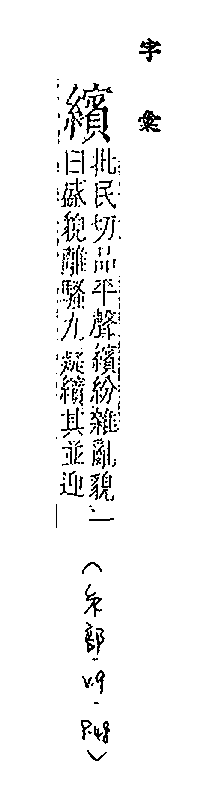 字彙
繽
批民切品平聲繽紛雜亂貌、一
曰盛貌離騷九疑繽其並迎
（糸部 V.9 - P.48）